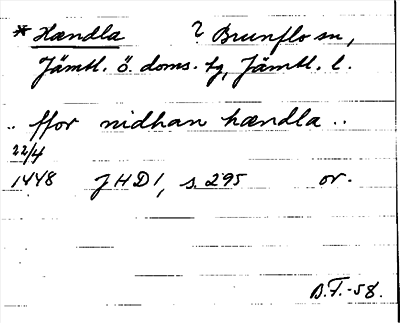 * Hændla ? Brunflo sn,
Jämtl. ö. doms. tg, Jämtl. l.
.. ffor nidhan hændla ..
22/4
1448 JHD1, s. 295 or.
B.F.-58.